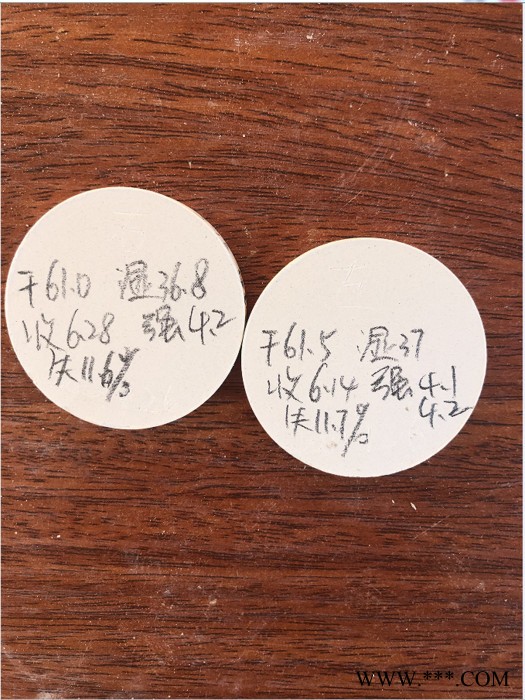 干61.0 湿36.8
收6.28 强4.2
失11.6%
干61.5 湿37
收6.14 强4.1
4.2
失11.7%
WWW.***.COM